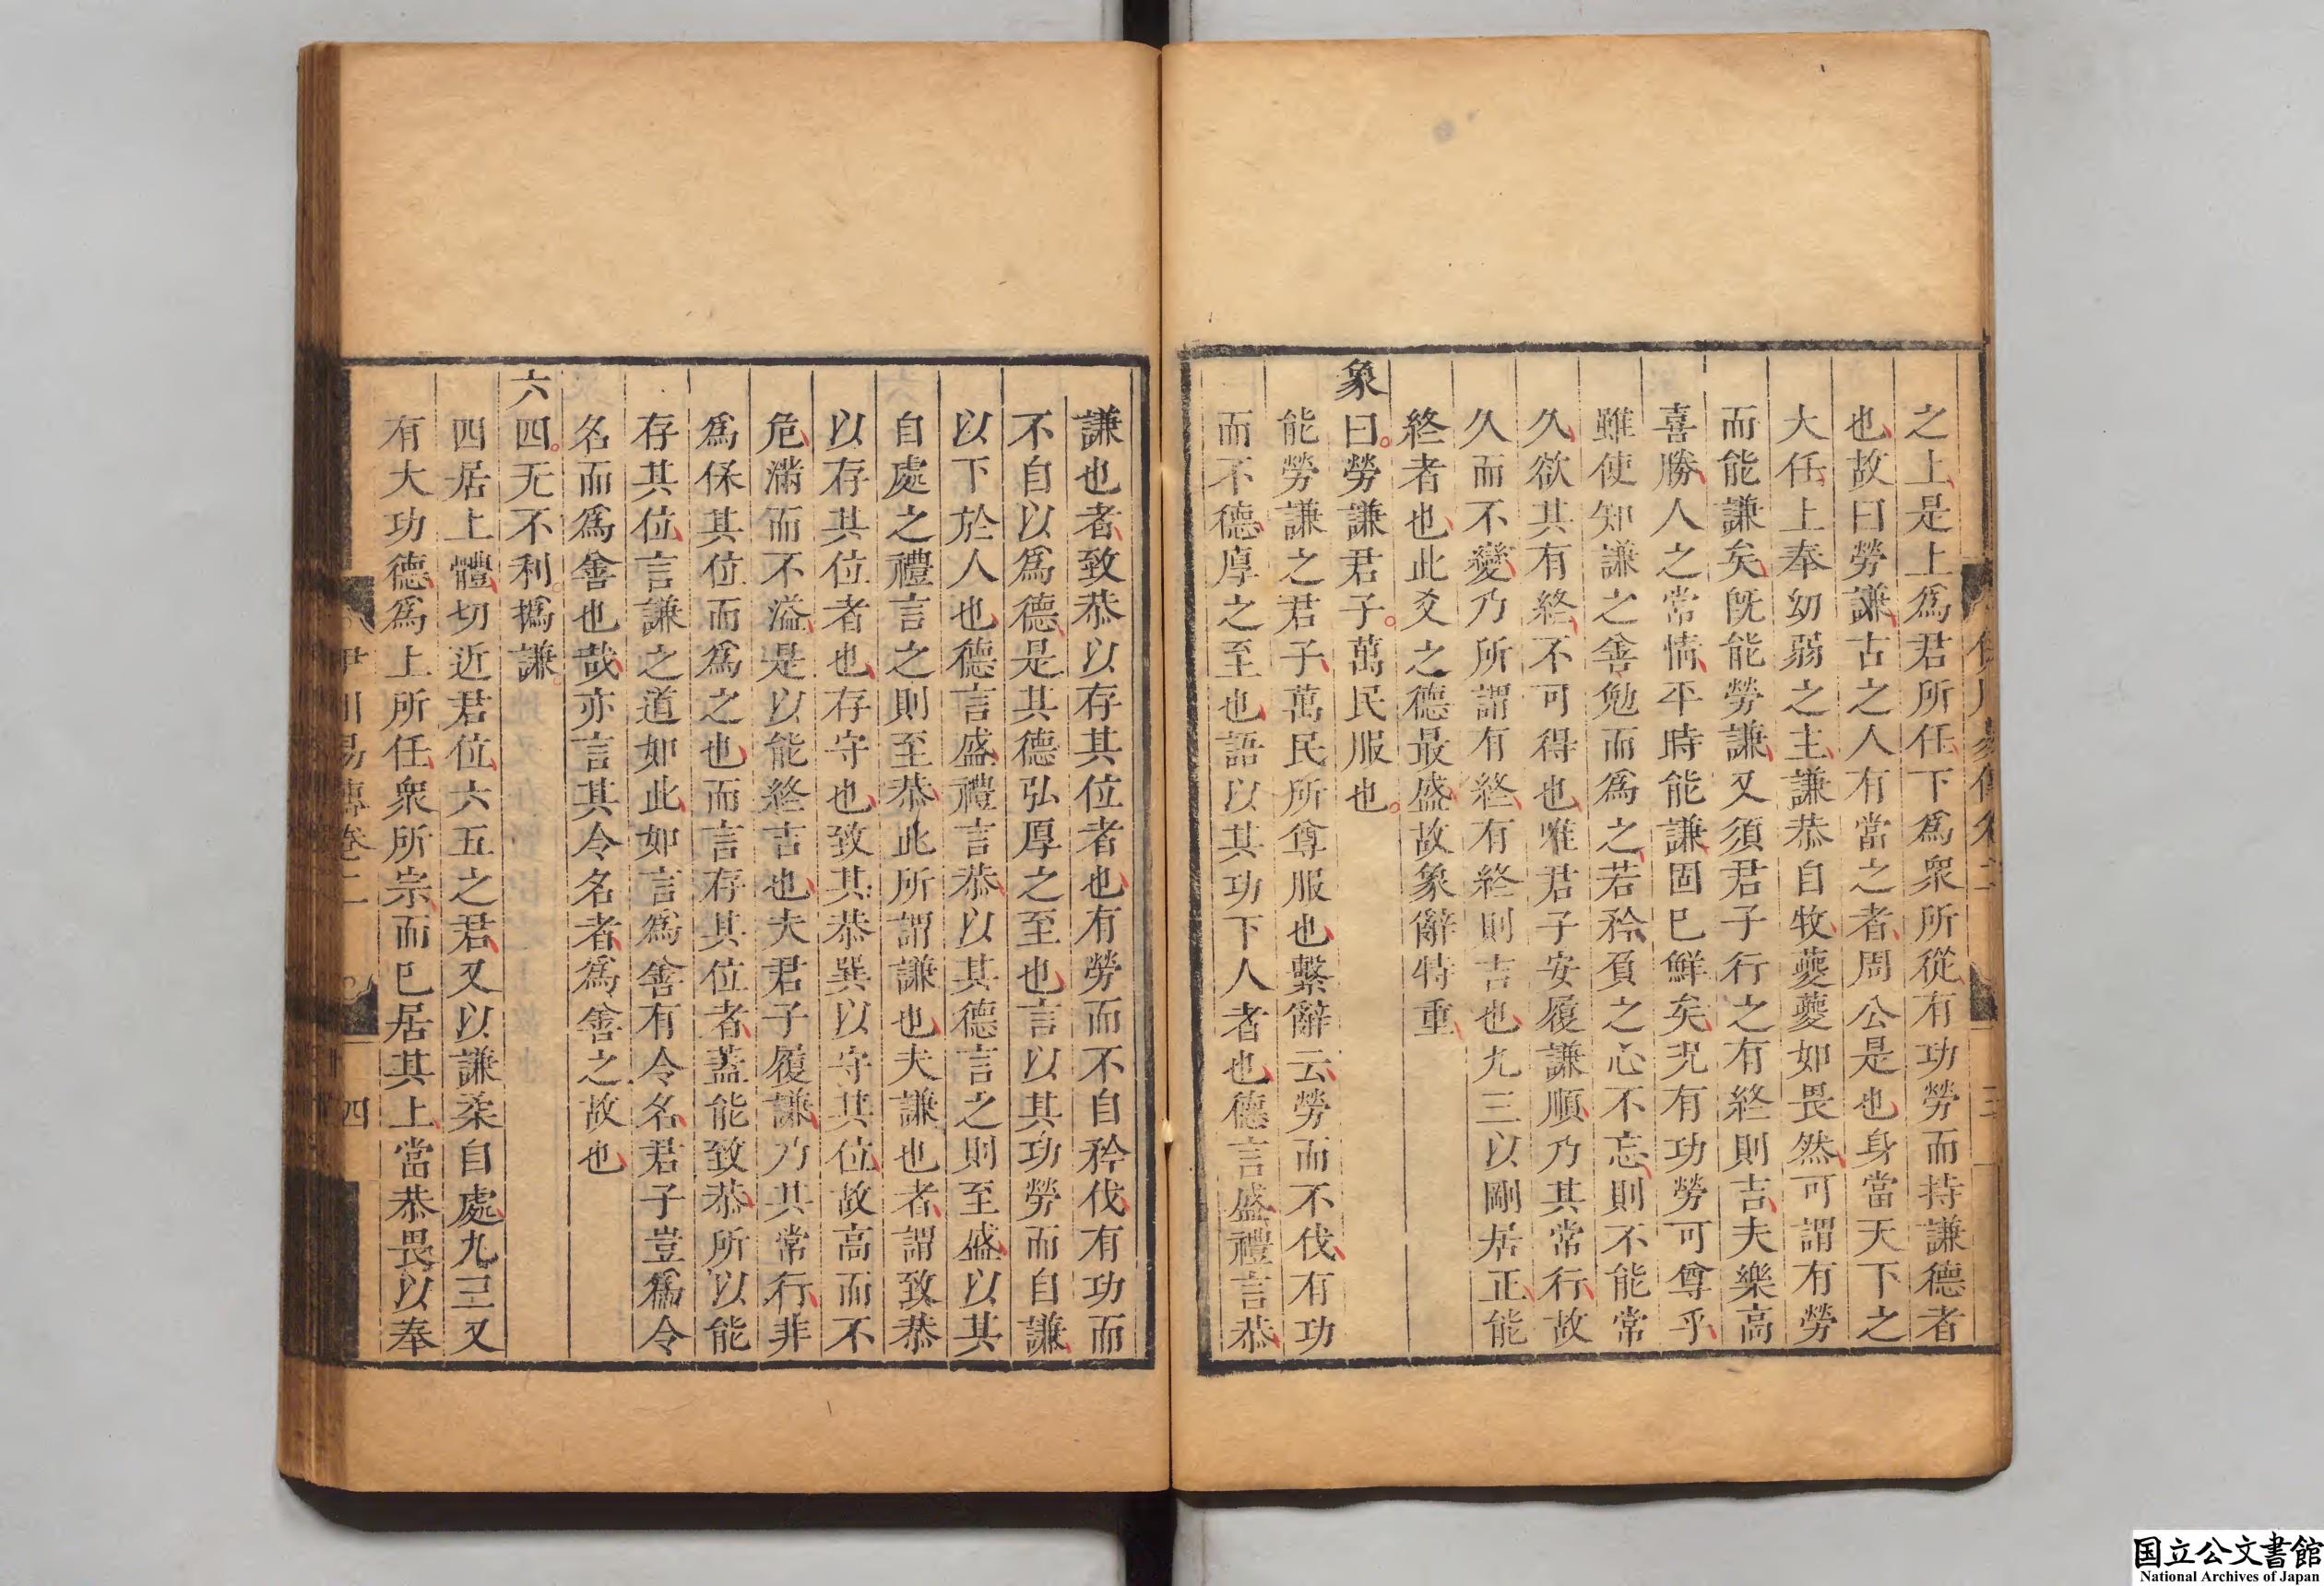 之上是上爲君所任下爲衆所從有功勞而持謙德者
也故曰勞謙古之人有當之者周公是也身當天下之
大任上奉幼弱之主謙恭自牧夔夔如畏然可謂有勞
而能謙矣旣能勞謙又須君子行之有終則吉夫樂高
喜勝人之常情平時能謙固已鮮矣况有功勞可尊乎
雖使知謙之善勉而爲之若矜負之心不忘則不能常
久欲其有終不可得也唯君子安履謙順乃其常行故
久而不變乃所謂有終有終則吉也九三以剛居正能
終者也此爻之德最盛故象辭特重
象曰勞謙君子萬民服也
能勞謙之君子萬民所尊服也繫辭云勞而不伐有功
而不德厚之至也語以其功下人者也德言盛禮言恭
謙也者致恭以存其位者也有勞而不自矜伐有功而
不自以爲德是其德弘厚之至也言以其功勞而自謙
以下於人也德言盛禮言恭以其德言之則至盛以其
自處之禮言之則至恭此所謂謙也夫謙也者謂致恭
以存其位者也存守也致其恭巽以守其位故高而不
危滿而不溢是以能終吉也夫君子履謙乃其常行非
爲保其位而爲之也而言存其位者蓋能致恭所以能
存其位言謙之道如此如言爲善有令名君子豈爲令
名而爲善也哉亦言其令名者爲善之故也
六四无不利撝謙
四居上體切近君位六五之君又以謙柔自處九三又
有大功德爲上所任衆所宗而已居其上當恭畏以奉
伊川易傳卷二
四
国立公文書館
National Archives of Japan